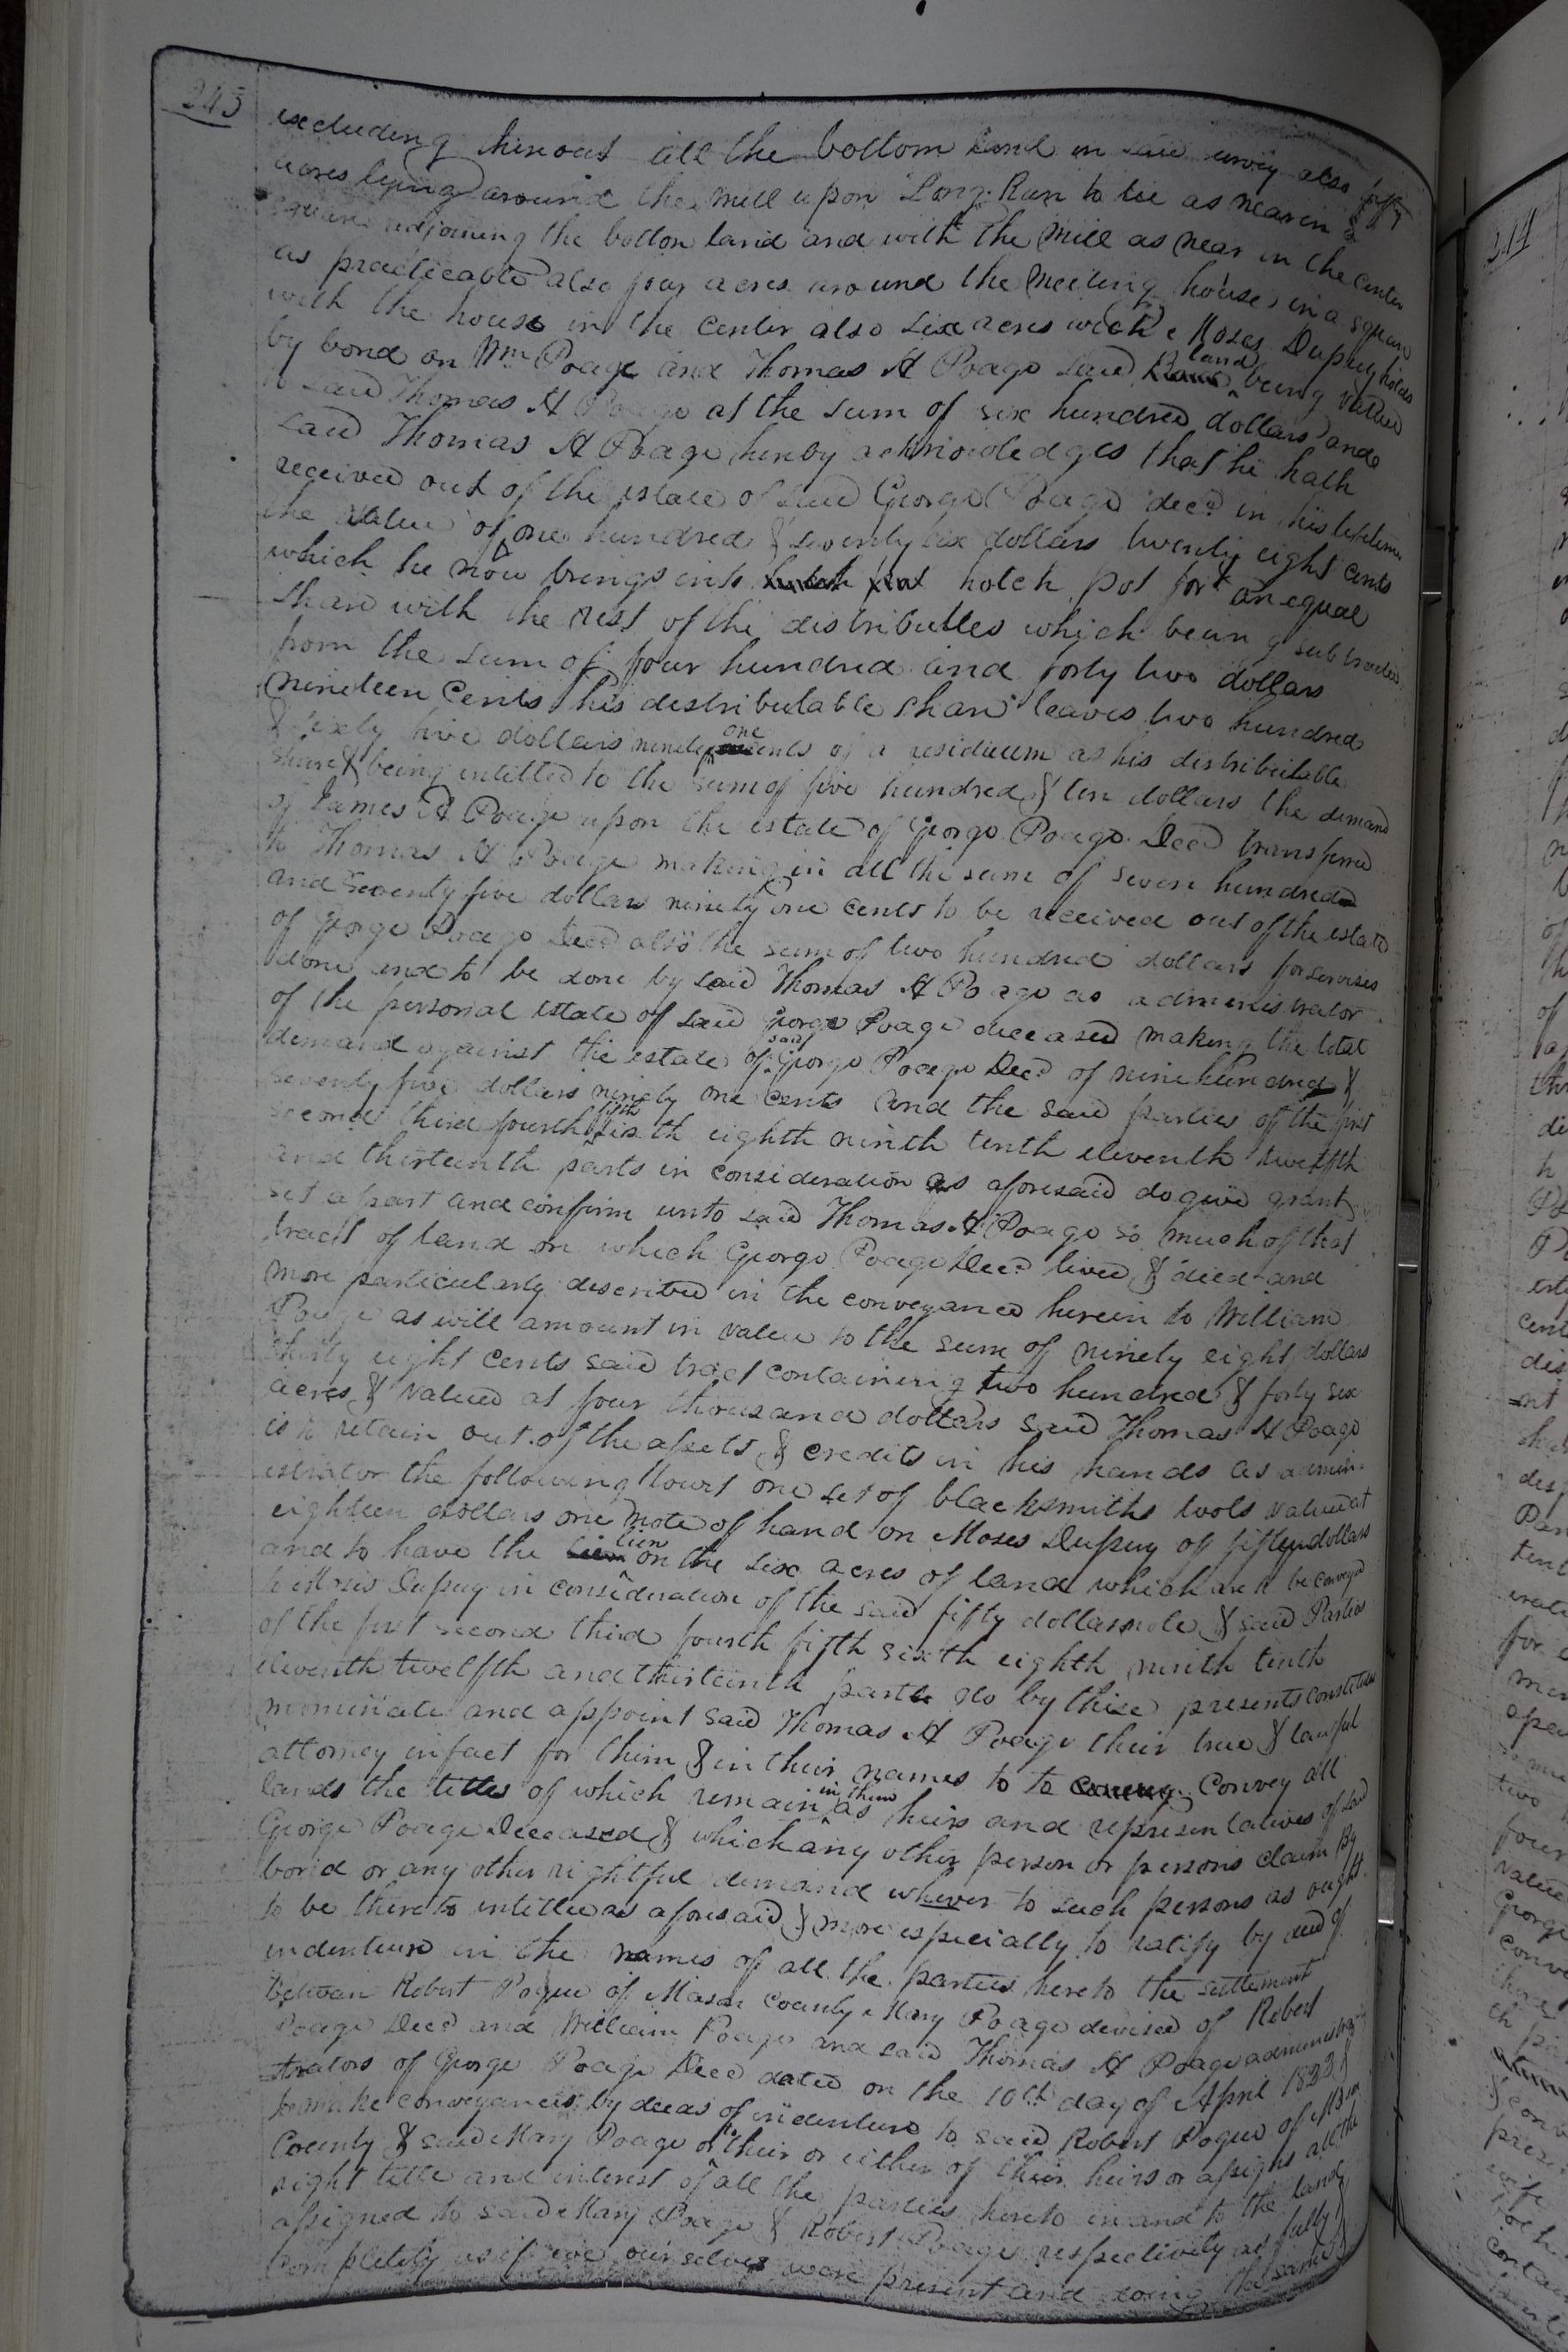 243
excluding hereout all the bottom land in said survey also fifty
acres lying around the mill upon Long Run to lie as near in a
square adjoining the bottom land and with the mill as near in the center
as practicable also four acres around the meeting house in a square
with the house in the center also six acres which Moses Dupuy holds
by bond on Wm Poage and Thomas H Poage said land being valued
to said Thomas H Poage at the sum of six hundred dollars and
said Thomas H Poage hereby acknowledges that he hath
received out of the estate of said George Poage decd in his lifetime
the value of one hundred & seventy six dollars twenty eight cents
which he now brings into hotch pot for an equal
share with the rest of the distributees which being subtracted
from the sum of four hundred and forty two dollars
nineteen cents his distributable share leaves two hundred
& sixty five dollars ninety one cents of a residieum as his distributable
share & being intitled to the sum of five hundred & ten dollars the demand
of James A Poage upon the estate of George Poage Decd transferred
to Thomas H Poage making in all the sum of seven hundred
and seventy five dollars ninety one cents to be received out of the estate
of George Poage Decd also the sum of two hundred dollars for servises
done and to be done by said Thomas H Poage as administrator
of the personal estate of said George Poage deceased making the total
demand against the estate of said George Poage Decd of nine hundred &
seventy five dollars ninety one cents and the said parties of the first
second third fourth fifth sixth eighth ninth tenth eleventh twelfth
and thirteenth parts in consideration as aforesaid do give grant
set apart and confirm unto said Thomas H Poage so much of that
tract of land on which George Poage Decd lived & died and
more particularly described in the conveyance herein to William
Poage as will amount in value to the sum of ninety eight dollars
thirty eight cents said tract containing two hundred & forty six
acres & valued at four thousand dollars said Thomas H Poage
is to retain out of the assets & credits in his hands as admin-
istrator the following towit one set of blacksmiths tools valued at
eighteen dollars one note of hand on Moses Dupuy of fifty dollars
and to have the lien on the six acres of land which are to be conveyed
to Moses Dupuy in consideration of the said fifty dollar note & said Parties
of the first second third fourth fifth sixth eighth ninth tenth
eleventh twelfth and thirteenth parts do by these presents constitute
nominate and appoint said Thomas H Poage their true & lawful
attorney in fact for them & in their names to to convey all
lands the titles of which remain in them as heirs and representatives of said
George Poage Deceased & which any other person or persons claim By
bond or any other rightful demand whever to such persons as ought
to be thereto intitled as aforesaid & more especially to ratify by deed of
indenture in the names of all the parties hereto the settlement
between Robert Pogue of Mason County Mary Poage devisee of Robert
Poage Decd and William Poage and said Thomas H Poage adminis
trators of George Poage Decd dated on the 10th day of April 1823 &
to make conveyances by deeds of indenture to said Robert Pogue of Mason
County & said Mary Poage or to their or either of their heirs or assigns all the
right title and interest of all the parties hereto in and to the land
assigned to said Mary Poage & Robert Poage respectively as fully &
completely as if we ourselves were present and doing the same &
244